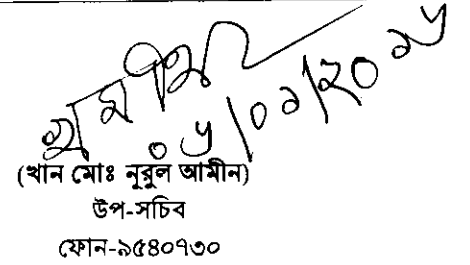 ০৮/০১/২০১৮
(খান মোঃ নূরুল আমীন)
উপ-সচিব
ফোন-৯৫৪০৭৩০